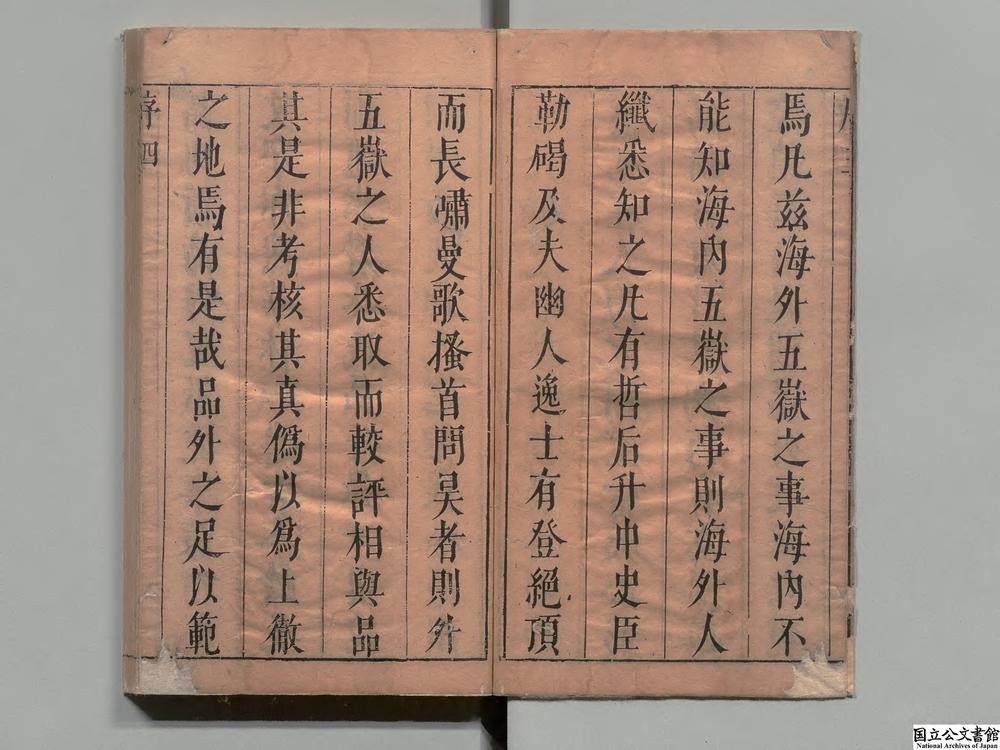 焉凡兹海外五嶽之事海内不
能知海内五嶽之事則海外人
纖悉知之凡有哲后升中史臣
勒碣及夫幽人逸士有登絕頂
而長嘯曼歌搔首問昊者則外
五嶽之人悉取而較評相與品
其是非考核其真偽以為上徹
之地焉有是哉品外之足以範
序四
国立公文書館
National Archives of Japan